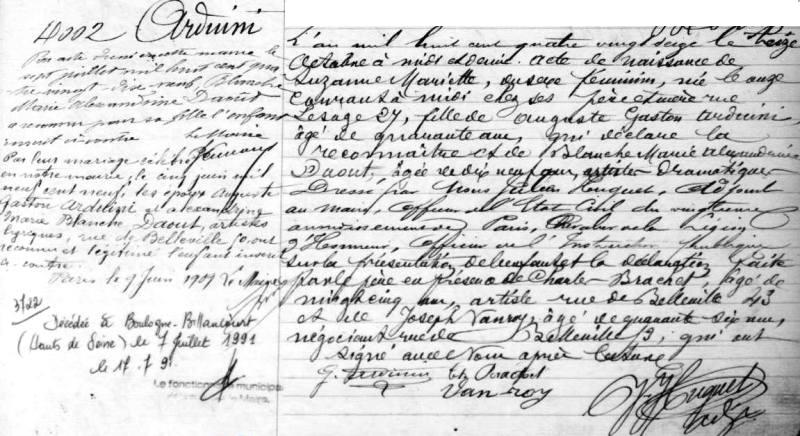 4002 Arduini
Par acte dressé en cette mairie le
sept juillet mil huit cent qua
tre vingt dix neuf, Blanche
Marie Alexandrine Daout
a reconnu pour sa fille l'enfant
inscrit ci contre Le Maire
Par leur mariage célébré
en notre mairie, le cinq juin mil
neuf cent neuf, les époux Auguste
Gaston Arduini et Alexandrine
Marie Blanche Daout, artistes
lyriques, rue de Belleville 50, ont
reconnu et légitimé l'enfant inscrit
ci-contre.
Paris le 9 Juin 1909 Le Maire
3722
Décédée à Boulogne-Billancourt
(Hauts de Seine) le 7 juillet 1991
le 17.7.91
Le fonctionnaire municipal
L'an mil huit cent quatre vingt seize le treize
Octobre à midi et demie. Acte de naissance de
Suzanne Mariette, du sexe féminin, née le onze
courant à midi chez ses père et mère rue
Lesage 27, fille de Auguste Gaston Arduini,
âgé de quarante ans, qui déclare la
reconnaître et de Blanche Marie Alexandrine
Daout, âgée de dix neuf ans, artistes dramatiques
Dressé par Nous Huguet, Adjoint
au maire, officier de l'Etat Civil du vingtième
arrondissement de Paris, Chevalier de la Légion
d'Honneur, Officier de l'Instruction Publique
sur la présentation de l'enfant et la déclaration faite
par le père en présence de Charles Brachet âgé de
vingt cinq ans, artiste rue de Belleville 43
et de Joseph Vanroy, âgé de quarante six ans,
négociant rue de Belleville 9; qui ont
signé avec Nous après lecture
G. Arduini Ch Brachet
Van-roy
Huguet